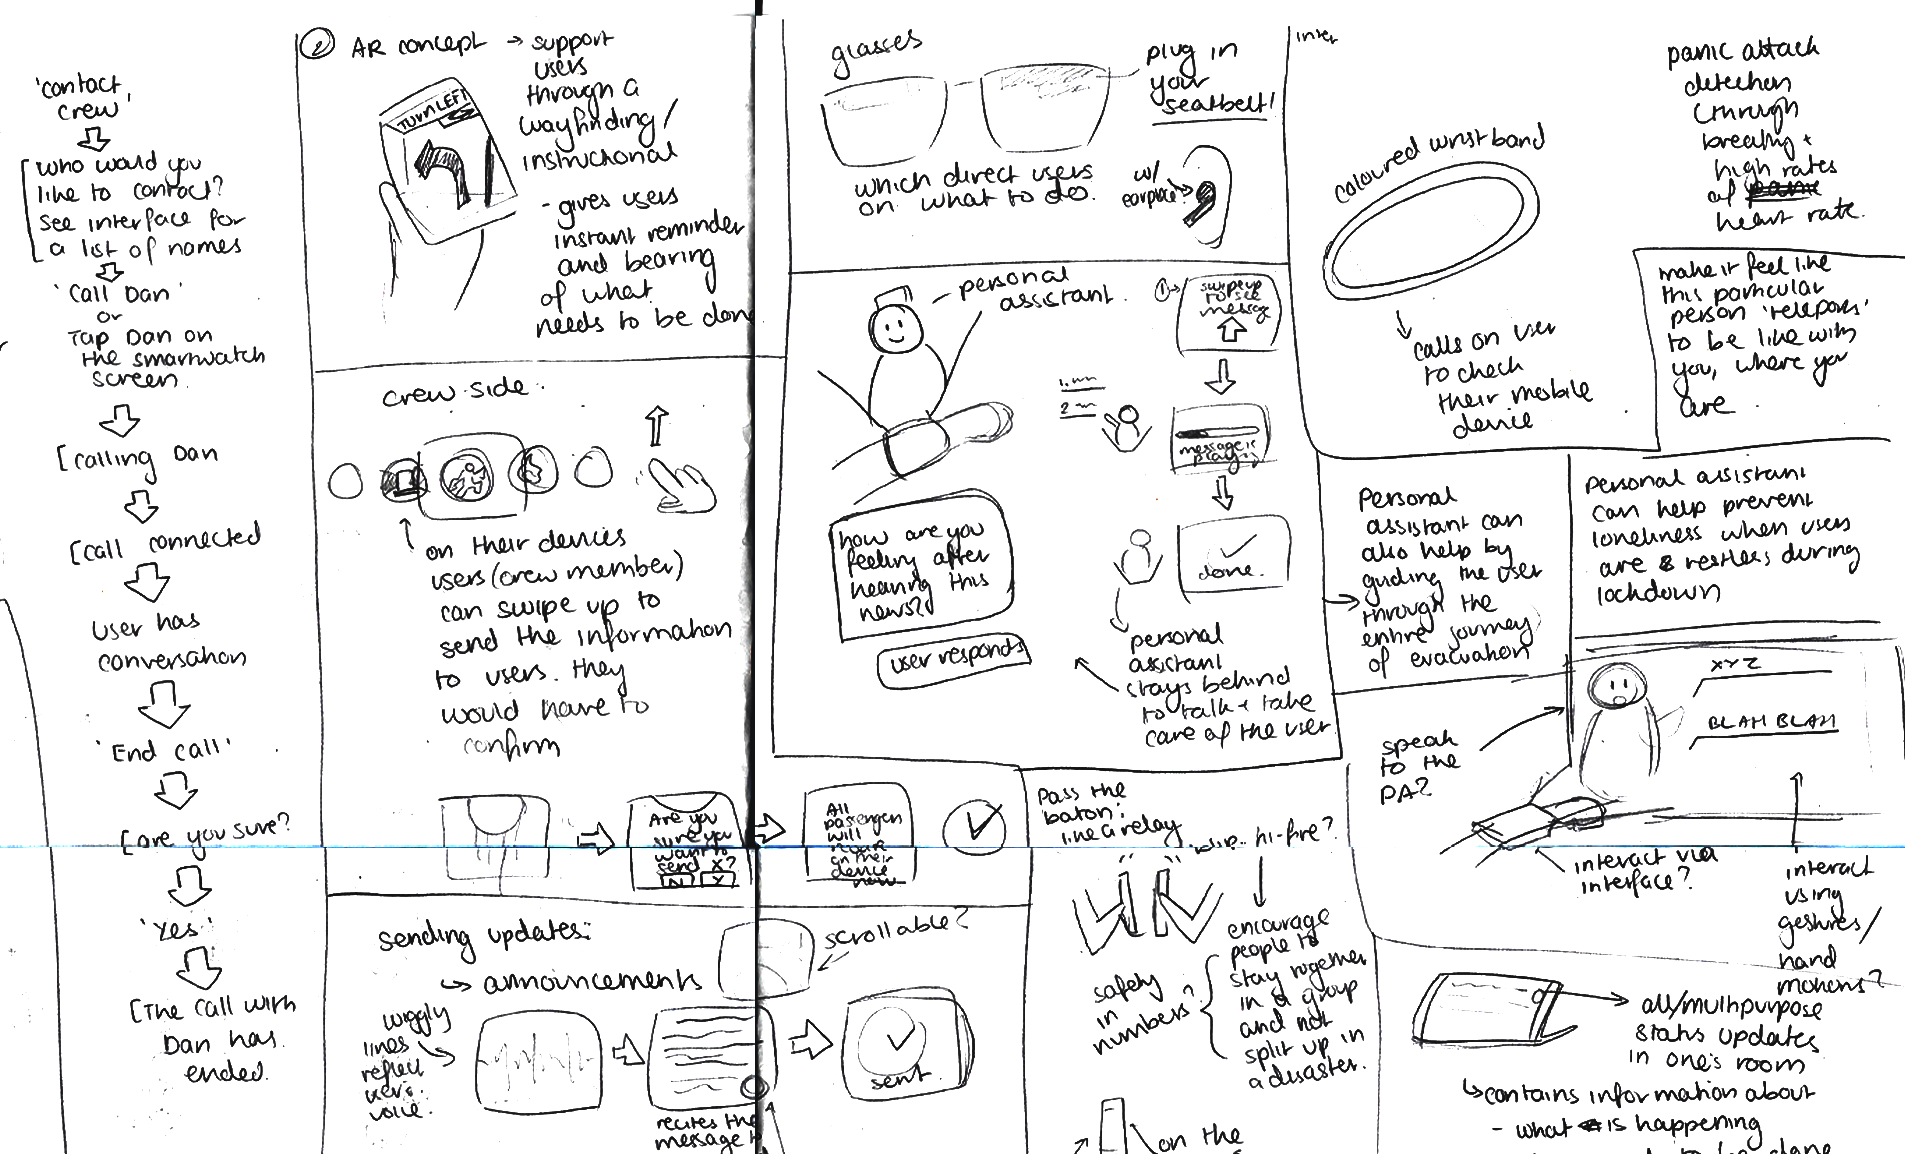 'contact
crew'
[who would you
like to contact?
see interface for
a list of names
'Call Dan'
or
Tap Dan on
the smartwatch
screen.
[calling Dan
[call connected
User has
conversation
'End call'
[are you sure?
'Yes'
[The call with
Dan has
ended.
② AR concept → support
users
through a
wayfinding/
instructional
TURN LEFT
- gives users
instant reminder
and bearing
of what
needs to be done
crew side.
on their devices
users (crew member)
can swipe up to
send the information
to users. they
would have to
confirm
Are you
sure you
want to
send X?
N Y
All
passengers
will
on their
device
now
sending updates:
↳ announcements
scrollable?
wiggly
lines
reflect
user's
voice.
recites the
message
sent
glasses
plug in
your
seatbelt!
which direct users
on what to do.
w/
earpiece
personal
assistant.
①→
swipe up
to see
message
1.
2
message is
playing
done.
how are you
feeling after
hearing this
news?
user responds
personal
assistant
stays behind
to talk + take
care of the user
Inter
coloured wristband
calls on user
to check
their mobile
device
panic attack
detection
through
breathing +
high rates
of
heart rate.
make it feel like
this particular
person 'teleports'
to be like with
you, where you
are
Personal
assistant can
also help by
guiding the user
through the
entire journey
of evacuation
Personal assistant
can help prevent
loneliness when users
are restless during
lockdown
XYZ
BLAH BLAH
speak
to the
PA?
interact via
interface?
interact
using
gestures/
hand
motions?
Pass the
baton:
like a relay
hi-five?
safety
in
numbers?
encourage
people to
stay together
in a group
and not
split up in
a disaster.
on the
all/multipurpose
status updates
in one's room
↳ contains information about
- what is happening
to be done